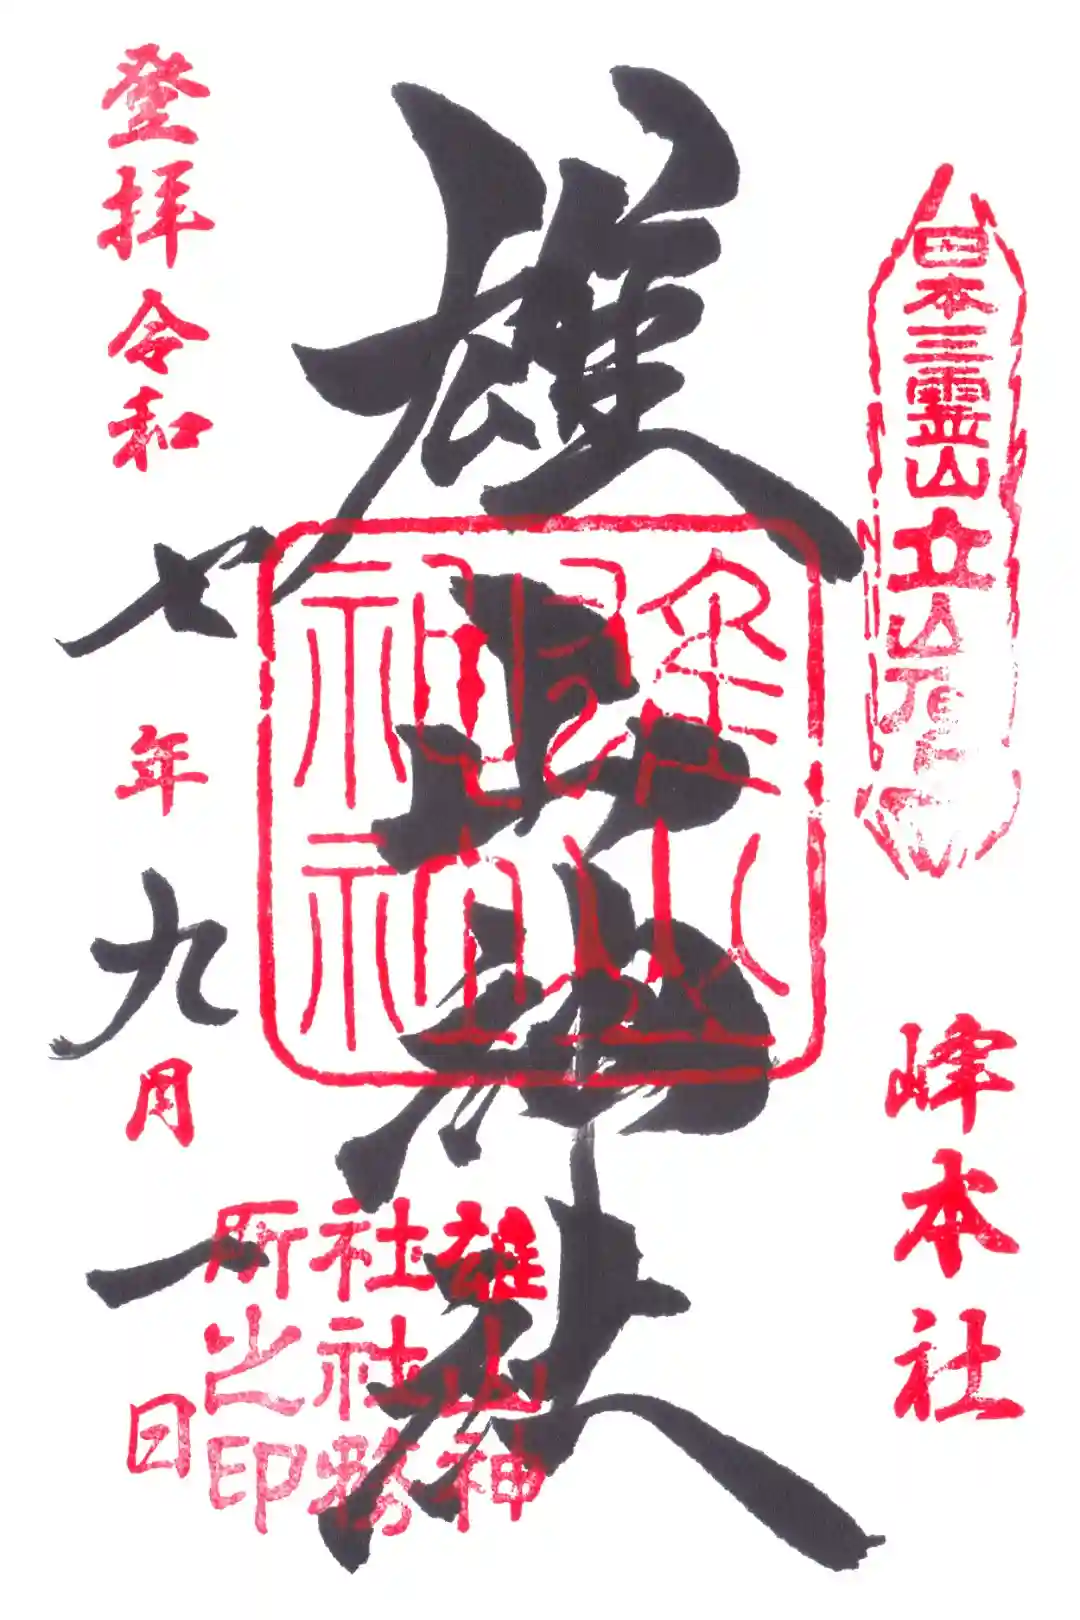 日本三霊山立山頂
峰本社
雄山神社
雄山神
社社務
所之印
登拝令和七年九月一日